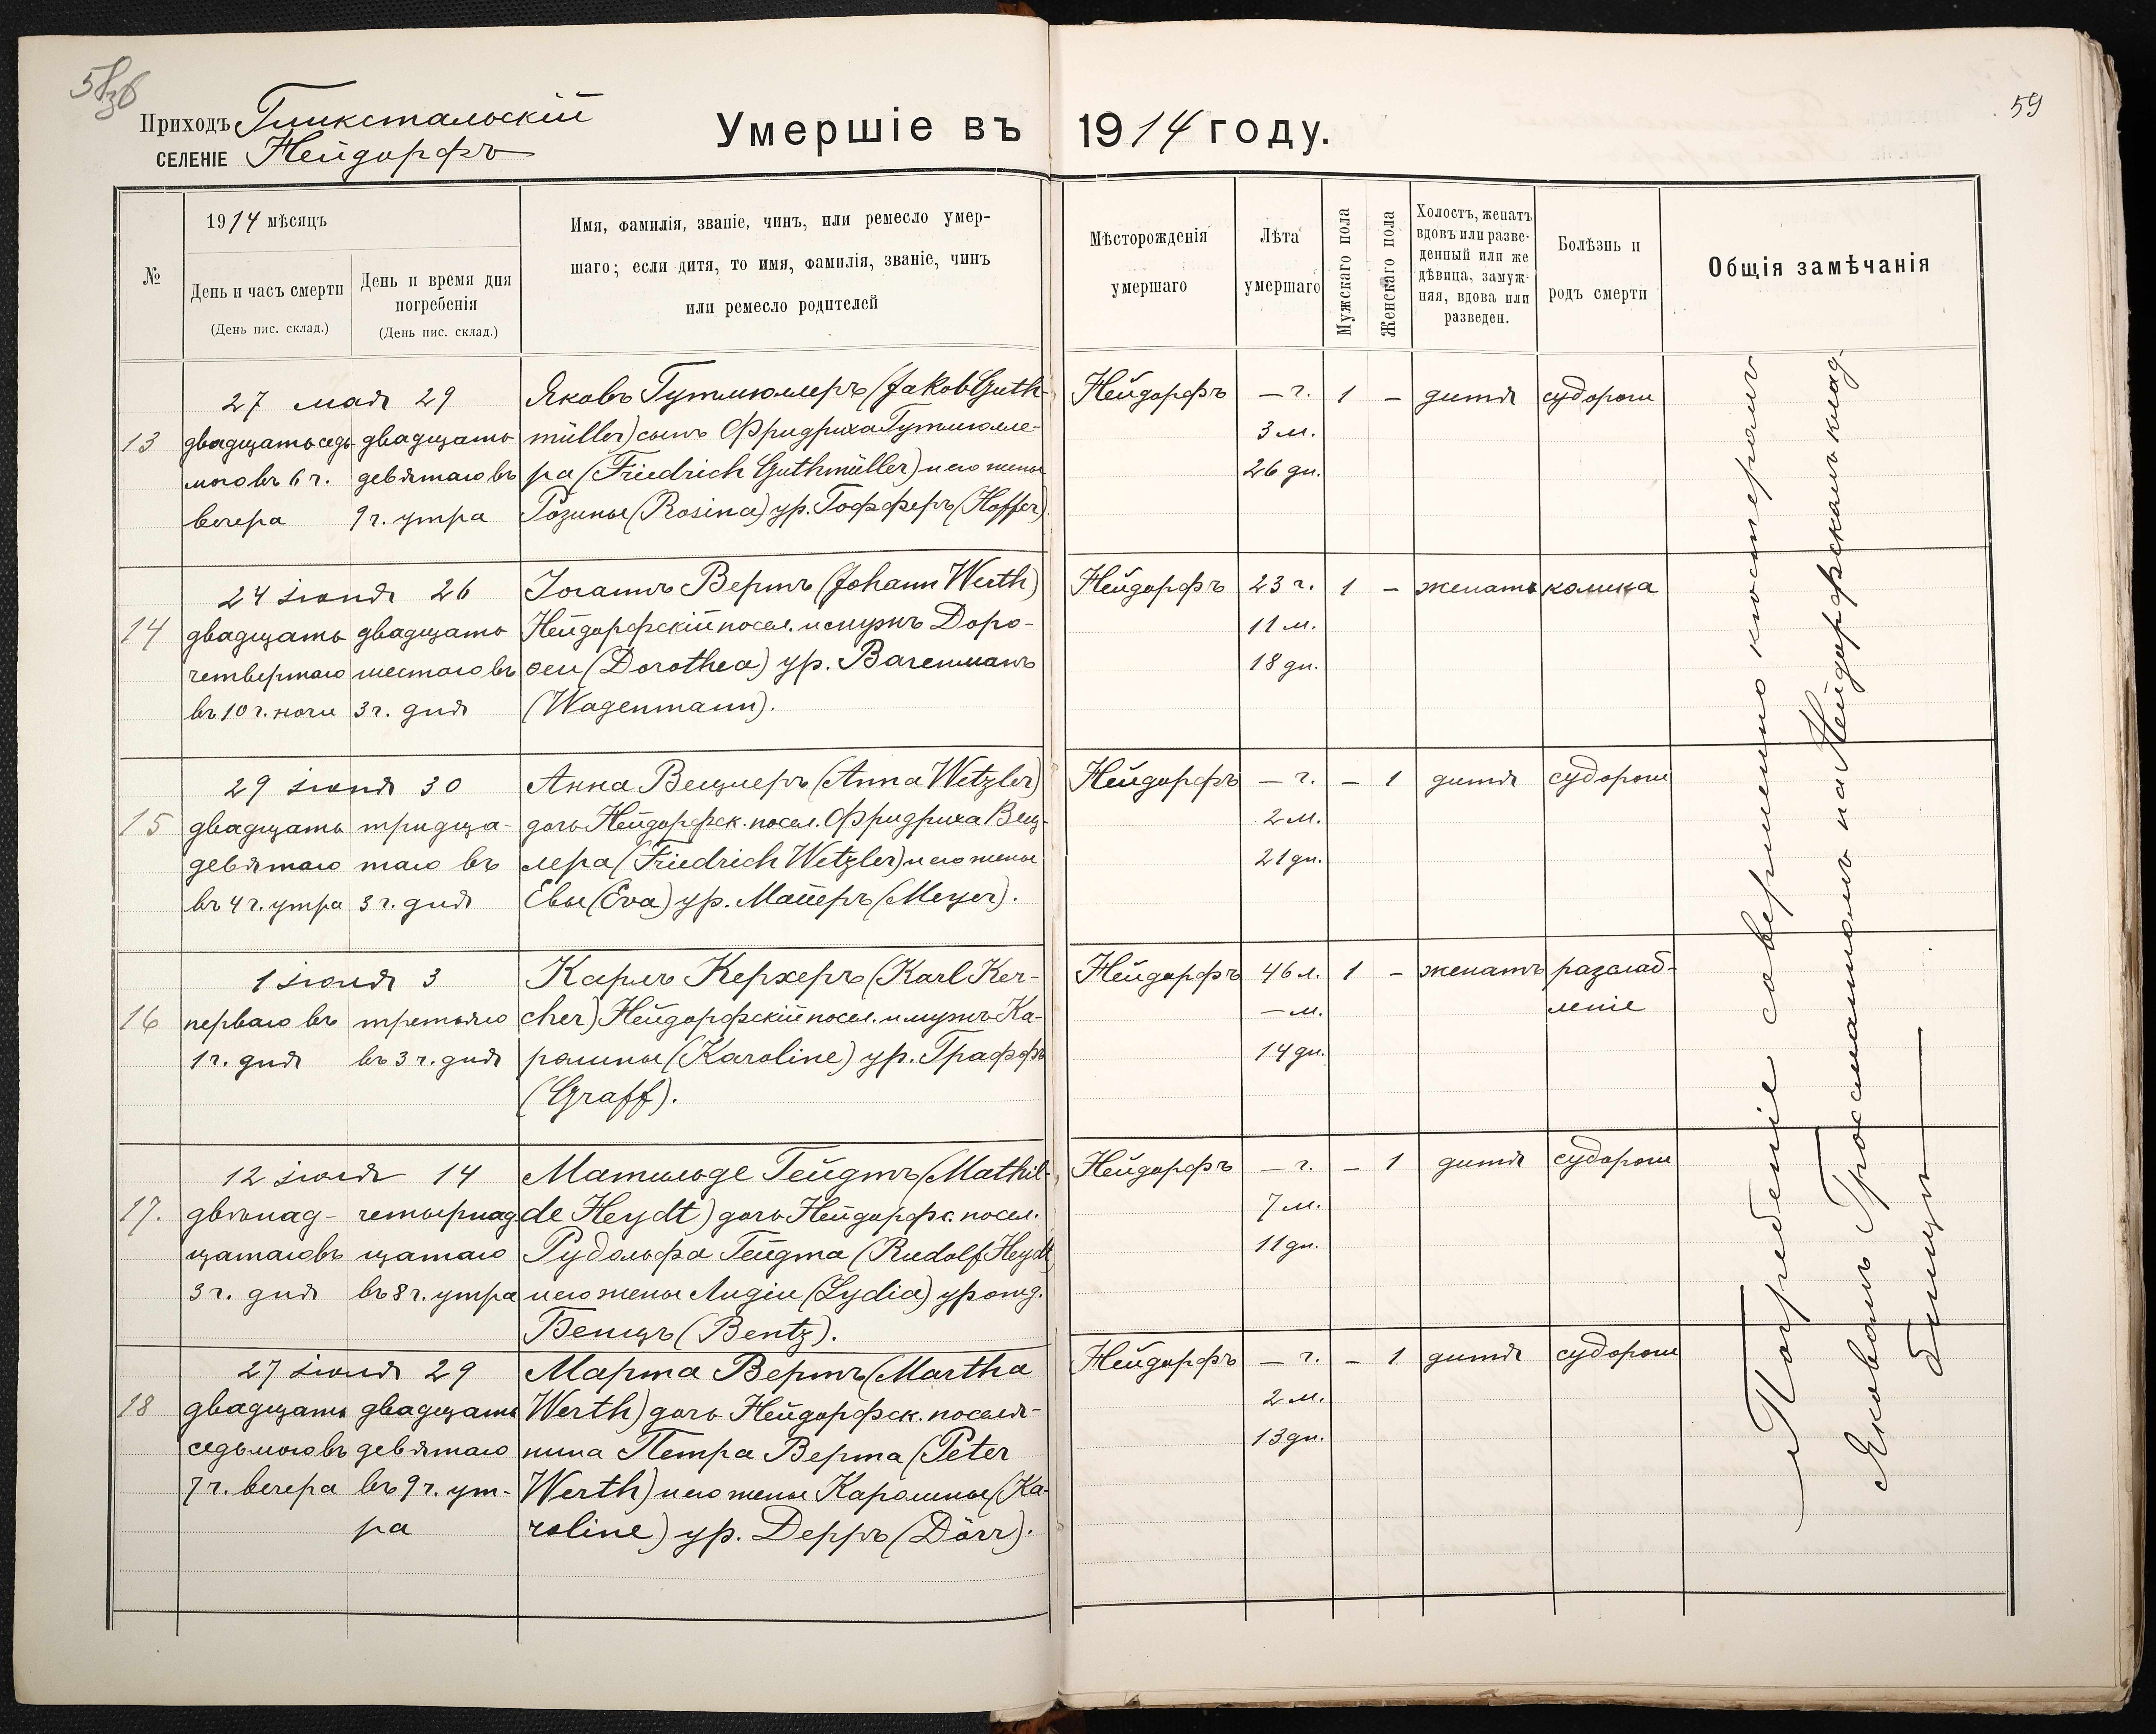 58 об
59
Приходъ Глюкстальскій
СЕЛЕНІЕ Нейдорфъ
Умершіе въ 1914 году.
№
1914 мѣсяцъ
День и часъ смерти
(День пис. склад.)
День и время дня
погребенія
(День пис. склад.)
Имя, фамилія, званіе, чинъ, или ремесло умер-
шаго; если дитя, то имя, фамилія, званіе, чинъ
или ремесло родителей
Мѣсторожденія
умершаго
Лѣта
умершаго
Мужскаго пола
Женскаго пола
Холостъ, женатъ
вдовъ или разве-
денный или же
дѣвица, замуж-
няя, вдова или
разведен.
Болѣзнь и
родъ смерти
Общія замѣчанія
13
27 мая 29
двадцать седь-
маго въ 6 ч.
вечера
двадцать
девятаго въ
9 ч. утра
Яковъ Гутмюллеръ (Jakob Guth-
müller) сынъ Фридриха Гутмюлле-
ра (Friedrich Guthmüller) и его жены
Розины (Rosina) ур. Гофферъ (Hoffer)
Нейдорфъ
— г.
3 м.
26 дн.
1
—
дитя
судороги
14
24 іюня 26
двадцать
четвертаго
въ 10 ч. ночи
двадцать
шестаго въ
3 ч. дня
Іоганъ Вертъ (Johann Werth)
Нейдорфскій посел. и мужъ Доро-
ѳеи (Dorothea) ур. Вагенманъ
(Wagenmann).
Нейдорфъ
23 г.
11 м.
18 дн.
1
—
женатъ
колика
15
29 іюня 30
двадцать
девятаго
въ 4 ч. утра
тридца-
таго въ
3 ч. дня
Анна Вецлеръ (Anna Wetzler)
дочь Нейдорфск. посел. Фридриха Вец-
лера (Friedrich Wetzler) и его жены
Евы (Eva) ур. Майеръ (Meyer).
Нейдорфъ
— г.
2 м.
21 дн.
—
1
дитя
судороги
16
1 іюля 3
перваго въ
1 ч. дня
третьяго
въ 3 ч. дня
Карлъ Керхеръ (Karl Ker-
cher) Нейдорфскій посел. и мужъ Ка-
ролины (Karoline) ур. Граффъ
(Graff).
Нейдорфъ
46 л.
— м.
14 дн.
1
—
женатъ
разслаб-
леніе
17.
12 іюля 14
двѣнад-
цатаго въ
3 ч. дня
четырнад
цатаго
въ 8 ч. утра
Матильде Гейдтъ (Mathil-
de Heydt) дочь Нейдорфс. посел.
Рудольфа Гейдта (Rudolf Heydt
и его жены Лидіи (Lydia) урожд.
Бенцъ (Bentz).
Нейдорфъ
— г.
7 м.
11 дн.
—
1
дитя
судороги
18
27 іюля 29
двадцать
седьмого въ
7 ч. вечера
двадцать
девятаго
въ 9 ч. ут-
ра
Марта Вертъ (Martha
Werth) дочь Нейдорфск. поселя-
нина Петра Верта (Peter
Werth) и его жены Каролины (Ka-
roline) ур. Дерръ (Dörr).
Нейдорфъ
— г.
2 м.
13 дн.
—
1
дитя
судороги
Погребеніе совершено кюстерами
Яковомъ Гроссманномъ на Нейдорфскомъ клад-
бищѣ